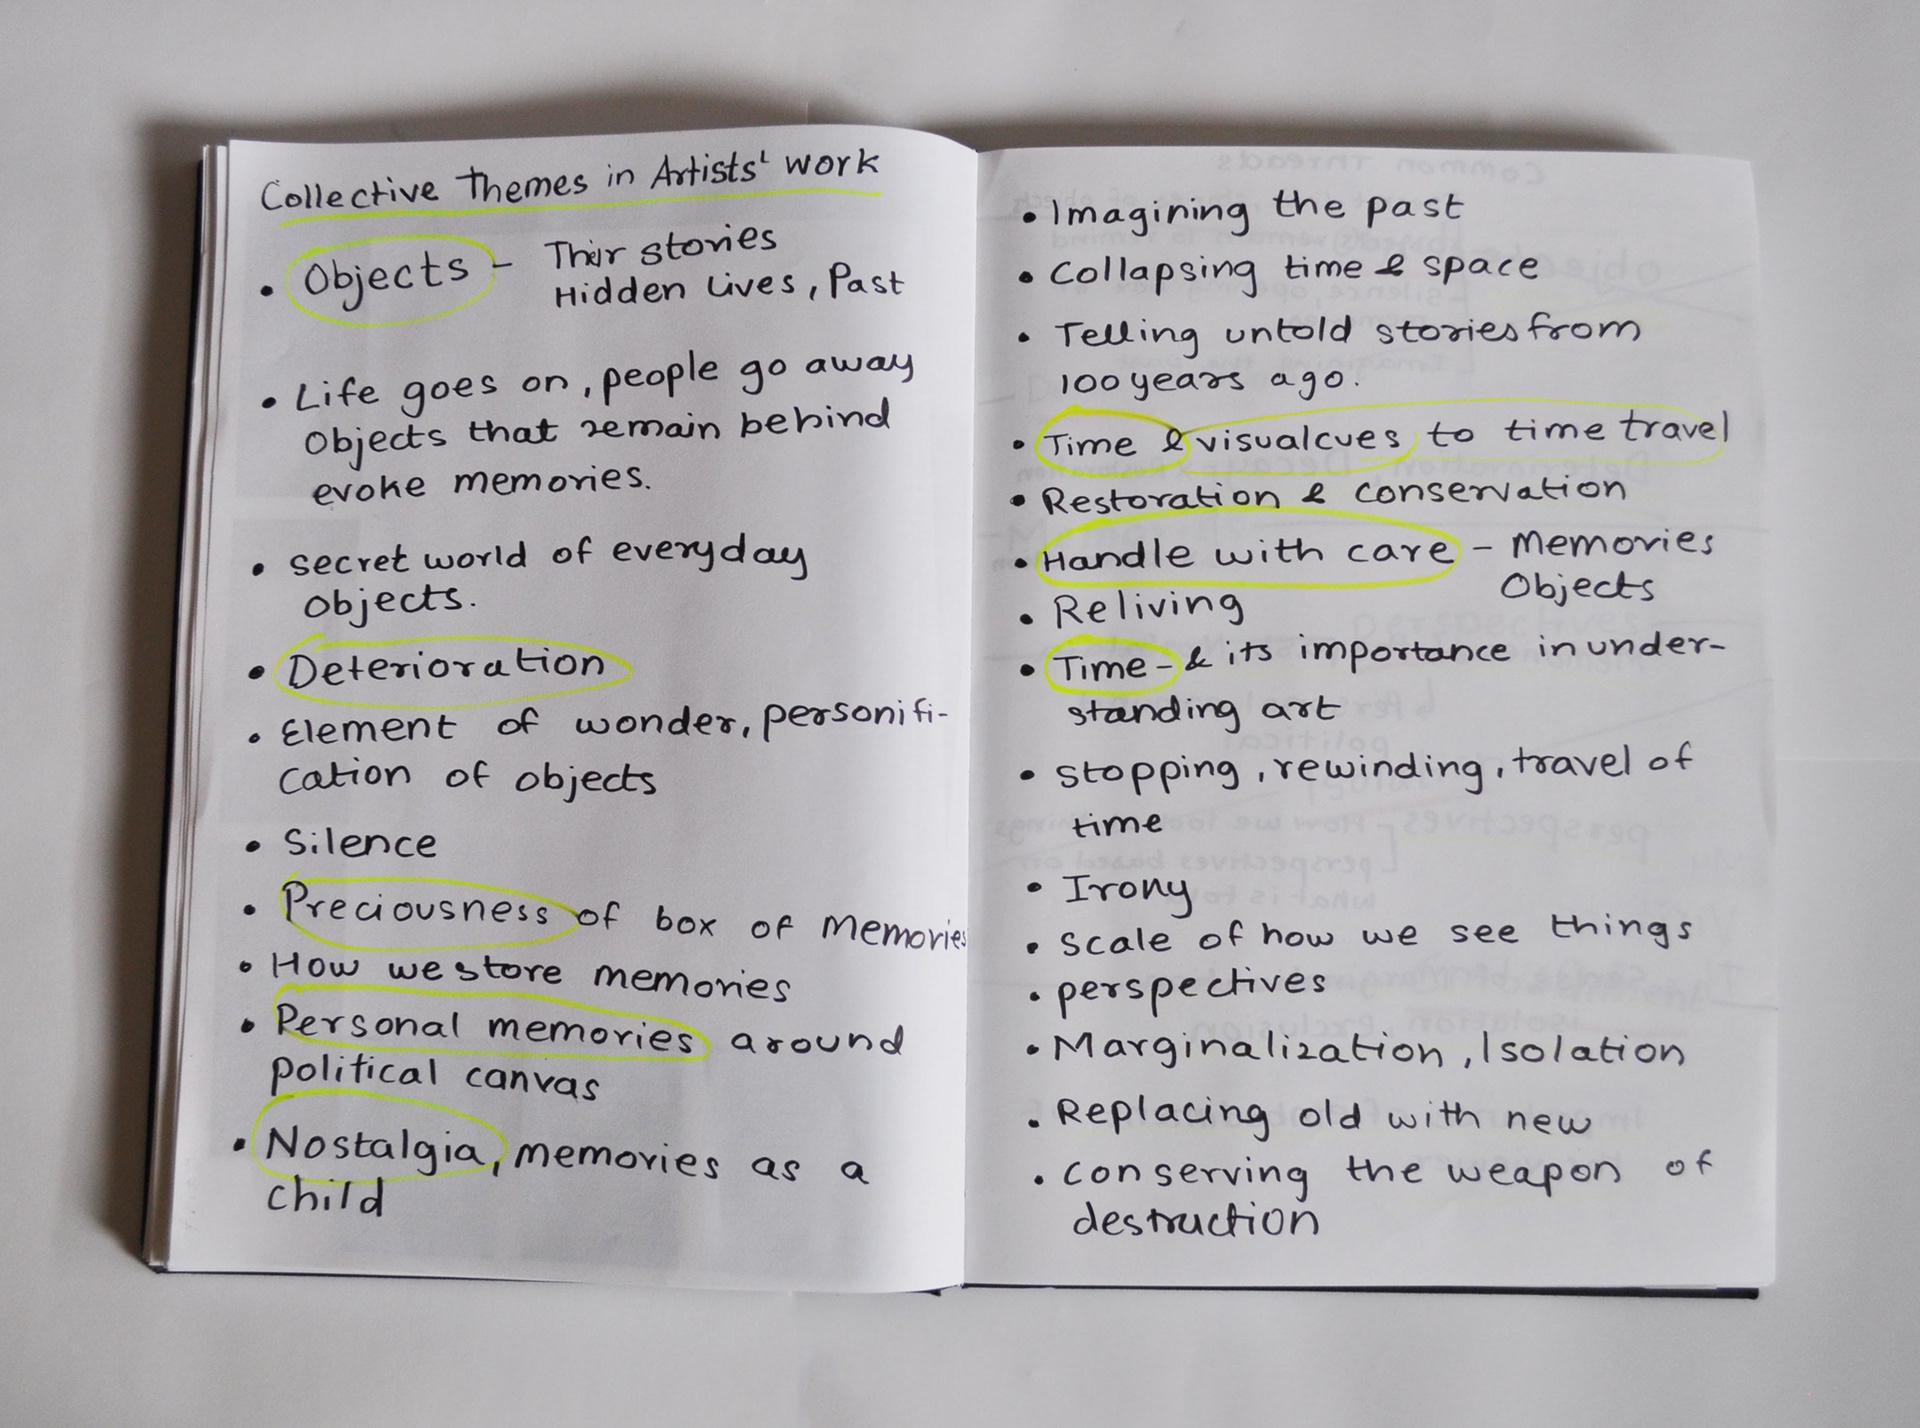 Collective Themes in Artists' work
• Objects - Their stories
Hidden Lives, Past
• Life goes on, people go away
objects that remain behind
evoke memories.
• secret world of everyday
objects.
• Deterioration
• Element of wonder, personifi-
cation of objects
• Silence
• Preciousness of box of Memories
• How we store memories
• Personal memories around
political canvas
• Nostalgia, memories as a
child
• Imagining the past
• Collapsing time & space
• Telling untold stories from
100 years ago.
• Time & visual cues to time travel
• Restoration & conservation
• Handle with care - Memories
Objects
• Reliving
• Time - & its importance in under-
standing art
• stopping, rewinding, travel of
time
• Irony
• Scale of how we see things
• perspectives
• Marginalization, Isolation
• Replacing old with new
• conserving the weapon of
destruction